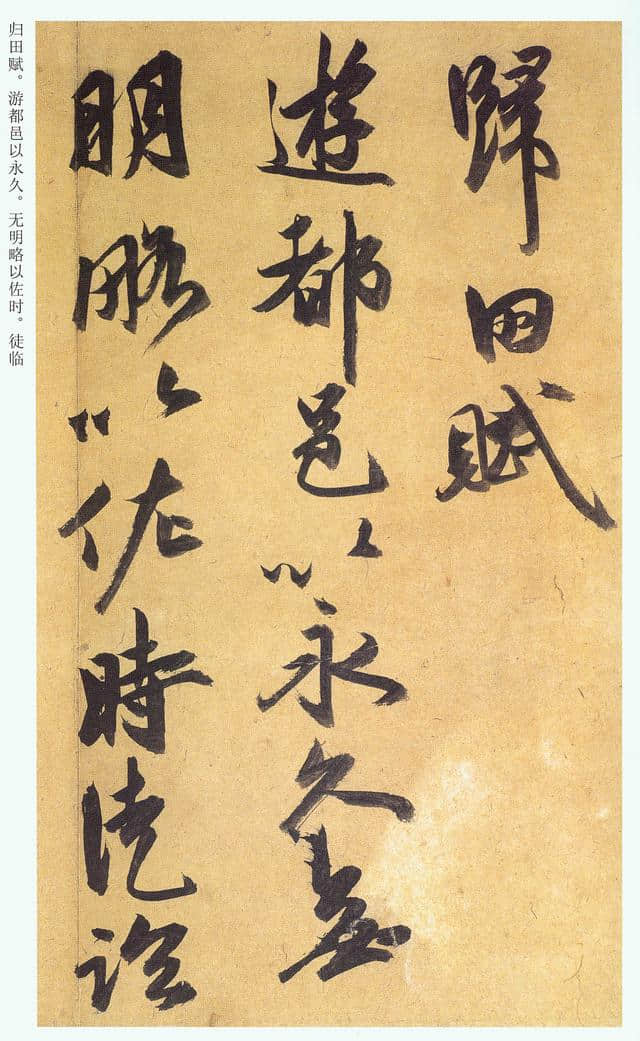 歸田賦
遊都邑以永久無
明略以佐時徒臨
归田赋。游都邑以永久。无明略以佐时。徒临